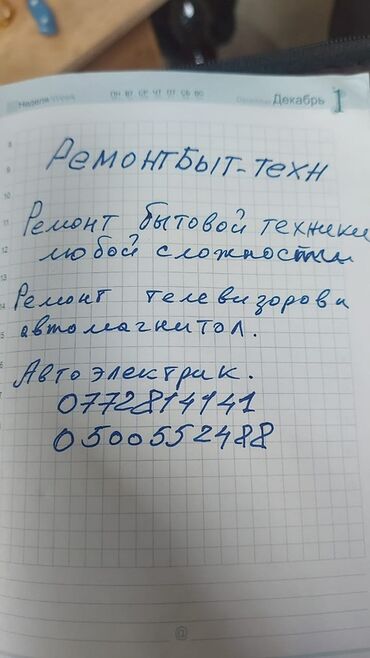 Неделя Week ПН ВТ СР ЧТ ПТ СБ ВС Декабрь 1
РемонтБыт-техн
Ремонт бытовой техники
любой сложности
Ремонт телевизоров и
автомагнитол.
Авто электрик.
0772814141
0500552488
@